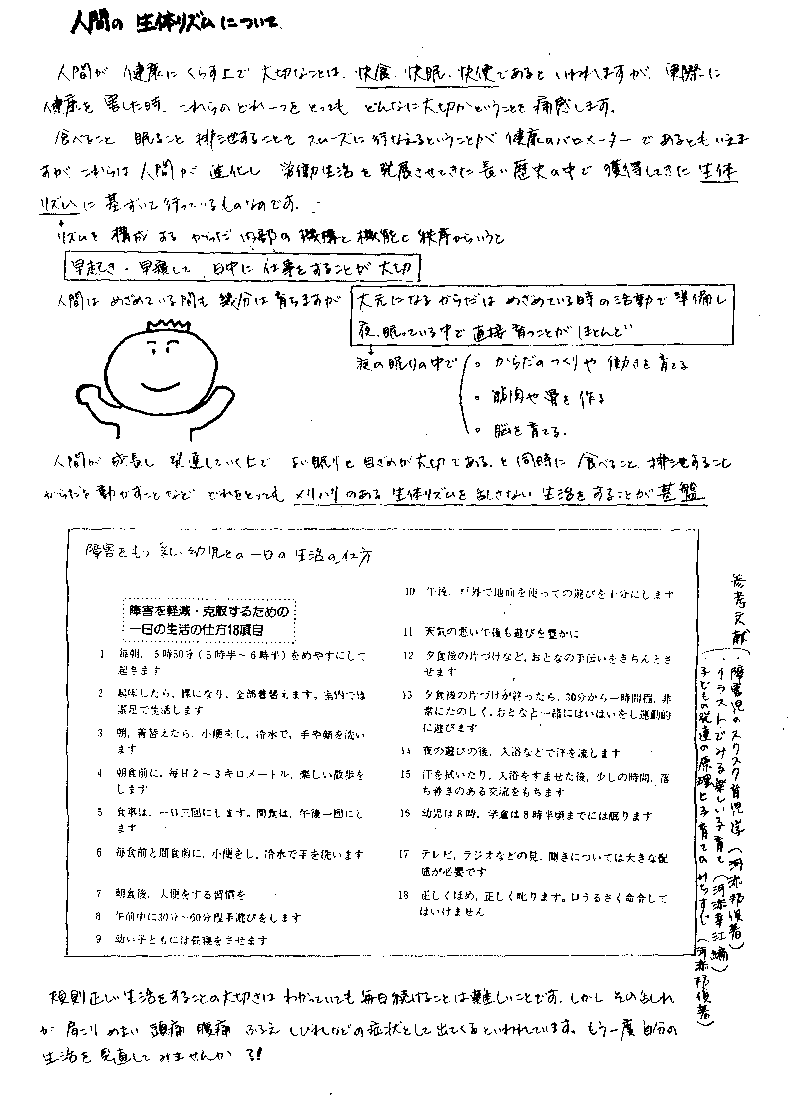 人間の 生体リズムについて
人間が 健康に くらす上で 大切なことは、快食、快眠、快便であると いわれますが、実際に
健康を 害した時、これらの どれ一つを とっても どんなに大切かということを 痛感します。
食べること 眠ること 排泄することを スムーズに 行なえるということが 健康のバロメーター であるとも いえま
すが これらは 人間が 進化し 労働生活を 発展させてきた 長い 歴史の中で 獲得してきた 生体
リズムに 基ずいて 行っているものなのです。
リズムを 構成する からだ 内部の 機構と 機能と 秩序からいうと
早起き・早寝して 日中に 仕事をすることが 大切
人間は めざめている間も 幾分は 育ちますが
大元になる からだは めざめている時の 活動で 準備し
夜、眠っている中で 直接 育つことが ほとんど
夜の眠りの中で
。からだのつくりや 働きを 育てる
。筋肉や骨を 作る
。脳を 育てる。
人間が 成長し 発達していく上で よい眠りと 目ざめが大切である と 同時に 食べること、排泄すること
からだを 動かすことなど どれをとっても メリハリのある 生体リズムを 乱さない 生活をすることが 基盤
障害をもつ 幼児との 一日の 生活の仕方
障害を軽減・克服するための
一日の生活の仕方18項目
1 毎朝、5時50分（5時半～6時半）をめやすにして
起きます
2 起床したら、裸になり、全部着替えます。室内では
裸足で生活します
3 朝、着替えたら、小便をし、冷水で、手や顔を洗い
ます
4 朝食前に、毎日2～3キロメートル、楽しい散歩を
します
5 食事は、一日三回にします。間食は、午後一回にし
ます
6 毎食前と間食前に、小便をし、冷水で手を洗います
7 朝食後、大便をする習慣を
8 午前中に30分～60分程手遊びをします
9 幼い子どもには昼寝をさせます
10 午後、戸外で地面を使っての遊びを十分にします
11 天気の悪い午後も遊びを豊かに
12 夕食後の片づけなど、おとなの手伝いをきちんとさ
せます
13 夕食後の片づけが終ったら、30分から一時間程、非
常にたのしく、おとなと一緒にはいはいをし運動的
に遊びます
14 夜の遊びの後、入浴などで汗を流します
15 汗を拭いたり、入浴をすませた後、少しの時間、落
ち着きのある交流をもちます
16 幼児は8時、学童は8時半頃までには眠ります
17 テレビ、ラジオなどの見、聞きについては大きな配
慮が必要です
18 正しくほめ、正しく叱ります。口うるさく命令して
はいけません
参考文献
・障害児のスクスク育児学（河添邦俊著）
・イラストでみる楽しい子育て（河添幸江編）
・子どもの発達の原理と子育てのみちすじ（河添邦俊著）
規則正しい生活をすることの大切さは わかっていても 毎日続けることは 難しいことです。しかし その乱れ
が 肩こり めまい 頭痛 腰痛 ふるえ しびれなどの症状として出てくるといわれています。もう一度自分の
生活を 見直して みませんか